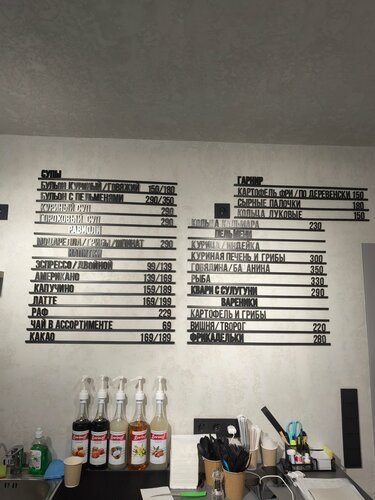 СУПЫ
БУЛЬОН КУРИНЫЙ/ГОВЯЖИЙ 150/180
БУЛЬОН С ПЕЛЬМЕНЯМИ 290/350
КУРИНЫЙ СУП 290
ГОРОХОВЫЙ СУП 290
РАВИОЛИ
МОЦАРЕЛЛА/ГРИБЫ/ШПИНАТ 290
НАПИТКИ
ЭСПРЕССО/ДВОЙНОЙ 99/139
АМЕРИКАНО 139/169
КАПУЧИНО 159/189
ЛАТТЕ 169/199
РАФ 229
ЧАЙ В АССОРТИМЕНТЕ 69
КАКАО 169/189
ГАРНИР
КАРТОФЕЛЬ ФРИ/ПО ДЕРЕВЕНСКИ 150
СЫРНЫЕ ПАЛОЧКИ 180
КОЛЬЦА ЛУКОВЫЕ 150
КОЛЬЦА КАЛЬМАРА 230
ПЕЛЬМЕНИ
КУРИЦА/ИНДЕЙКА
КУРИНАЯ ПЕЧЕНЬ И ГРИБЫ 300
ГОВЯДИНА/БА АНИНА 350
РЫБА 330
КВАРИ С СУЛУГУНИ 290
ВАРЕНИКИ
КАРТОФЕЛЬ И ГРИБЫ
ВИШНЯ/ТВОРОГ 220
ФРИКАДЕЛЬКИ 280